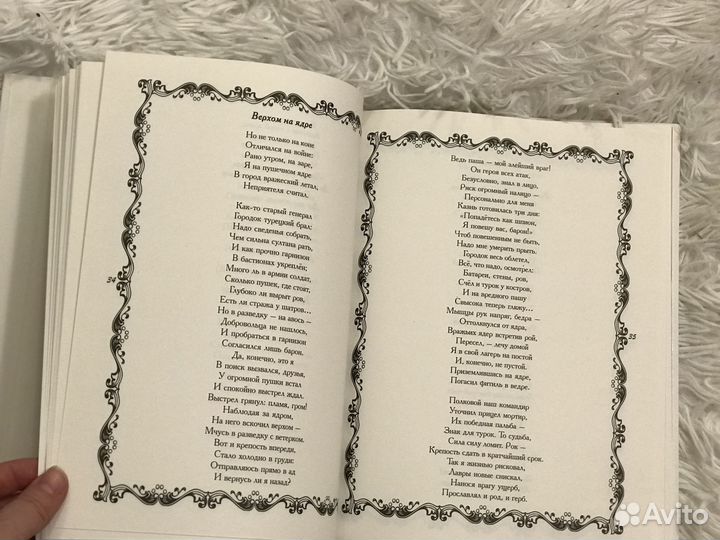 Верхом на ядре
Но не только на коне
Отличался на войне:
Рано утром, на заре,
Я на пушечном ядре
В город вражеский летал,
Неприятеля считал.
Как-то старый генерал
Городок турецкий брал:
Надо сведенья собрать,
Чем сильна султана рать,
И как прочно гарнизон
В бастионах укреплён;
Много ль в армии солдат,
Сколько пушек, где стоят,
Глубоко ли вырыт ров,
Есть ли стража у шатров...
Но в разведку – на авось –
Добровольца не нашлось,
И пробраться в гарнизон
Согласился лишь барон.
Да, конечно, это я
В поиск вызвался, друзья,
У огромной пушки встал
И спокойно выстрел ждал.
Выстрел грянул: пламя, гром!
Наблюдая за ядром,
На него вскочил верхом –
Мчусь в разведку с ветерком.
Вот и крепость впереди,
Стало холодно в груди:
Отправляюсь прямо в ад
И вернусь ли я назад?
34
Ведь паша – мой злейший враг!
Он героя всех атак,
Безусловно, знал в лицо,
Риск огромный налицо –
Персонально для меня
Казнь готовилась три дня:
«Попадётесь как шпион,
Я повешу вас, барон!»
Чтоб повешенным не быть,
Надо мне умерить прыть.
Городок весь облетел,
Всё, что надо, осмотрел:
Батареи, стены, ров,
Счёл и турок у костров,
И на вредного пашу
Свысока теперь гляжу...
Мышцы рук напряг, бедра –
Оттолкнулся от ядра,
Вражьих ядер встретив рой,
Пересел, – лечу домой
Я в свой лагерь на постой
И, конечно, не пустой.
Приземлившись на ядре,
Погасил фитиль в ведре.
Полковой наш командир
Уточнил прицел мортир,
Их победная пальба –
Знак для турок. То судьба,
Сила силу ломит. Рок –
Крепость сдать в кратчайший срок.
Так я жизнью рисковал,
Лавры новые снискал,
Нанося врагу ущерб,
Прославлял и род, и герб.
35
Avito